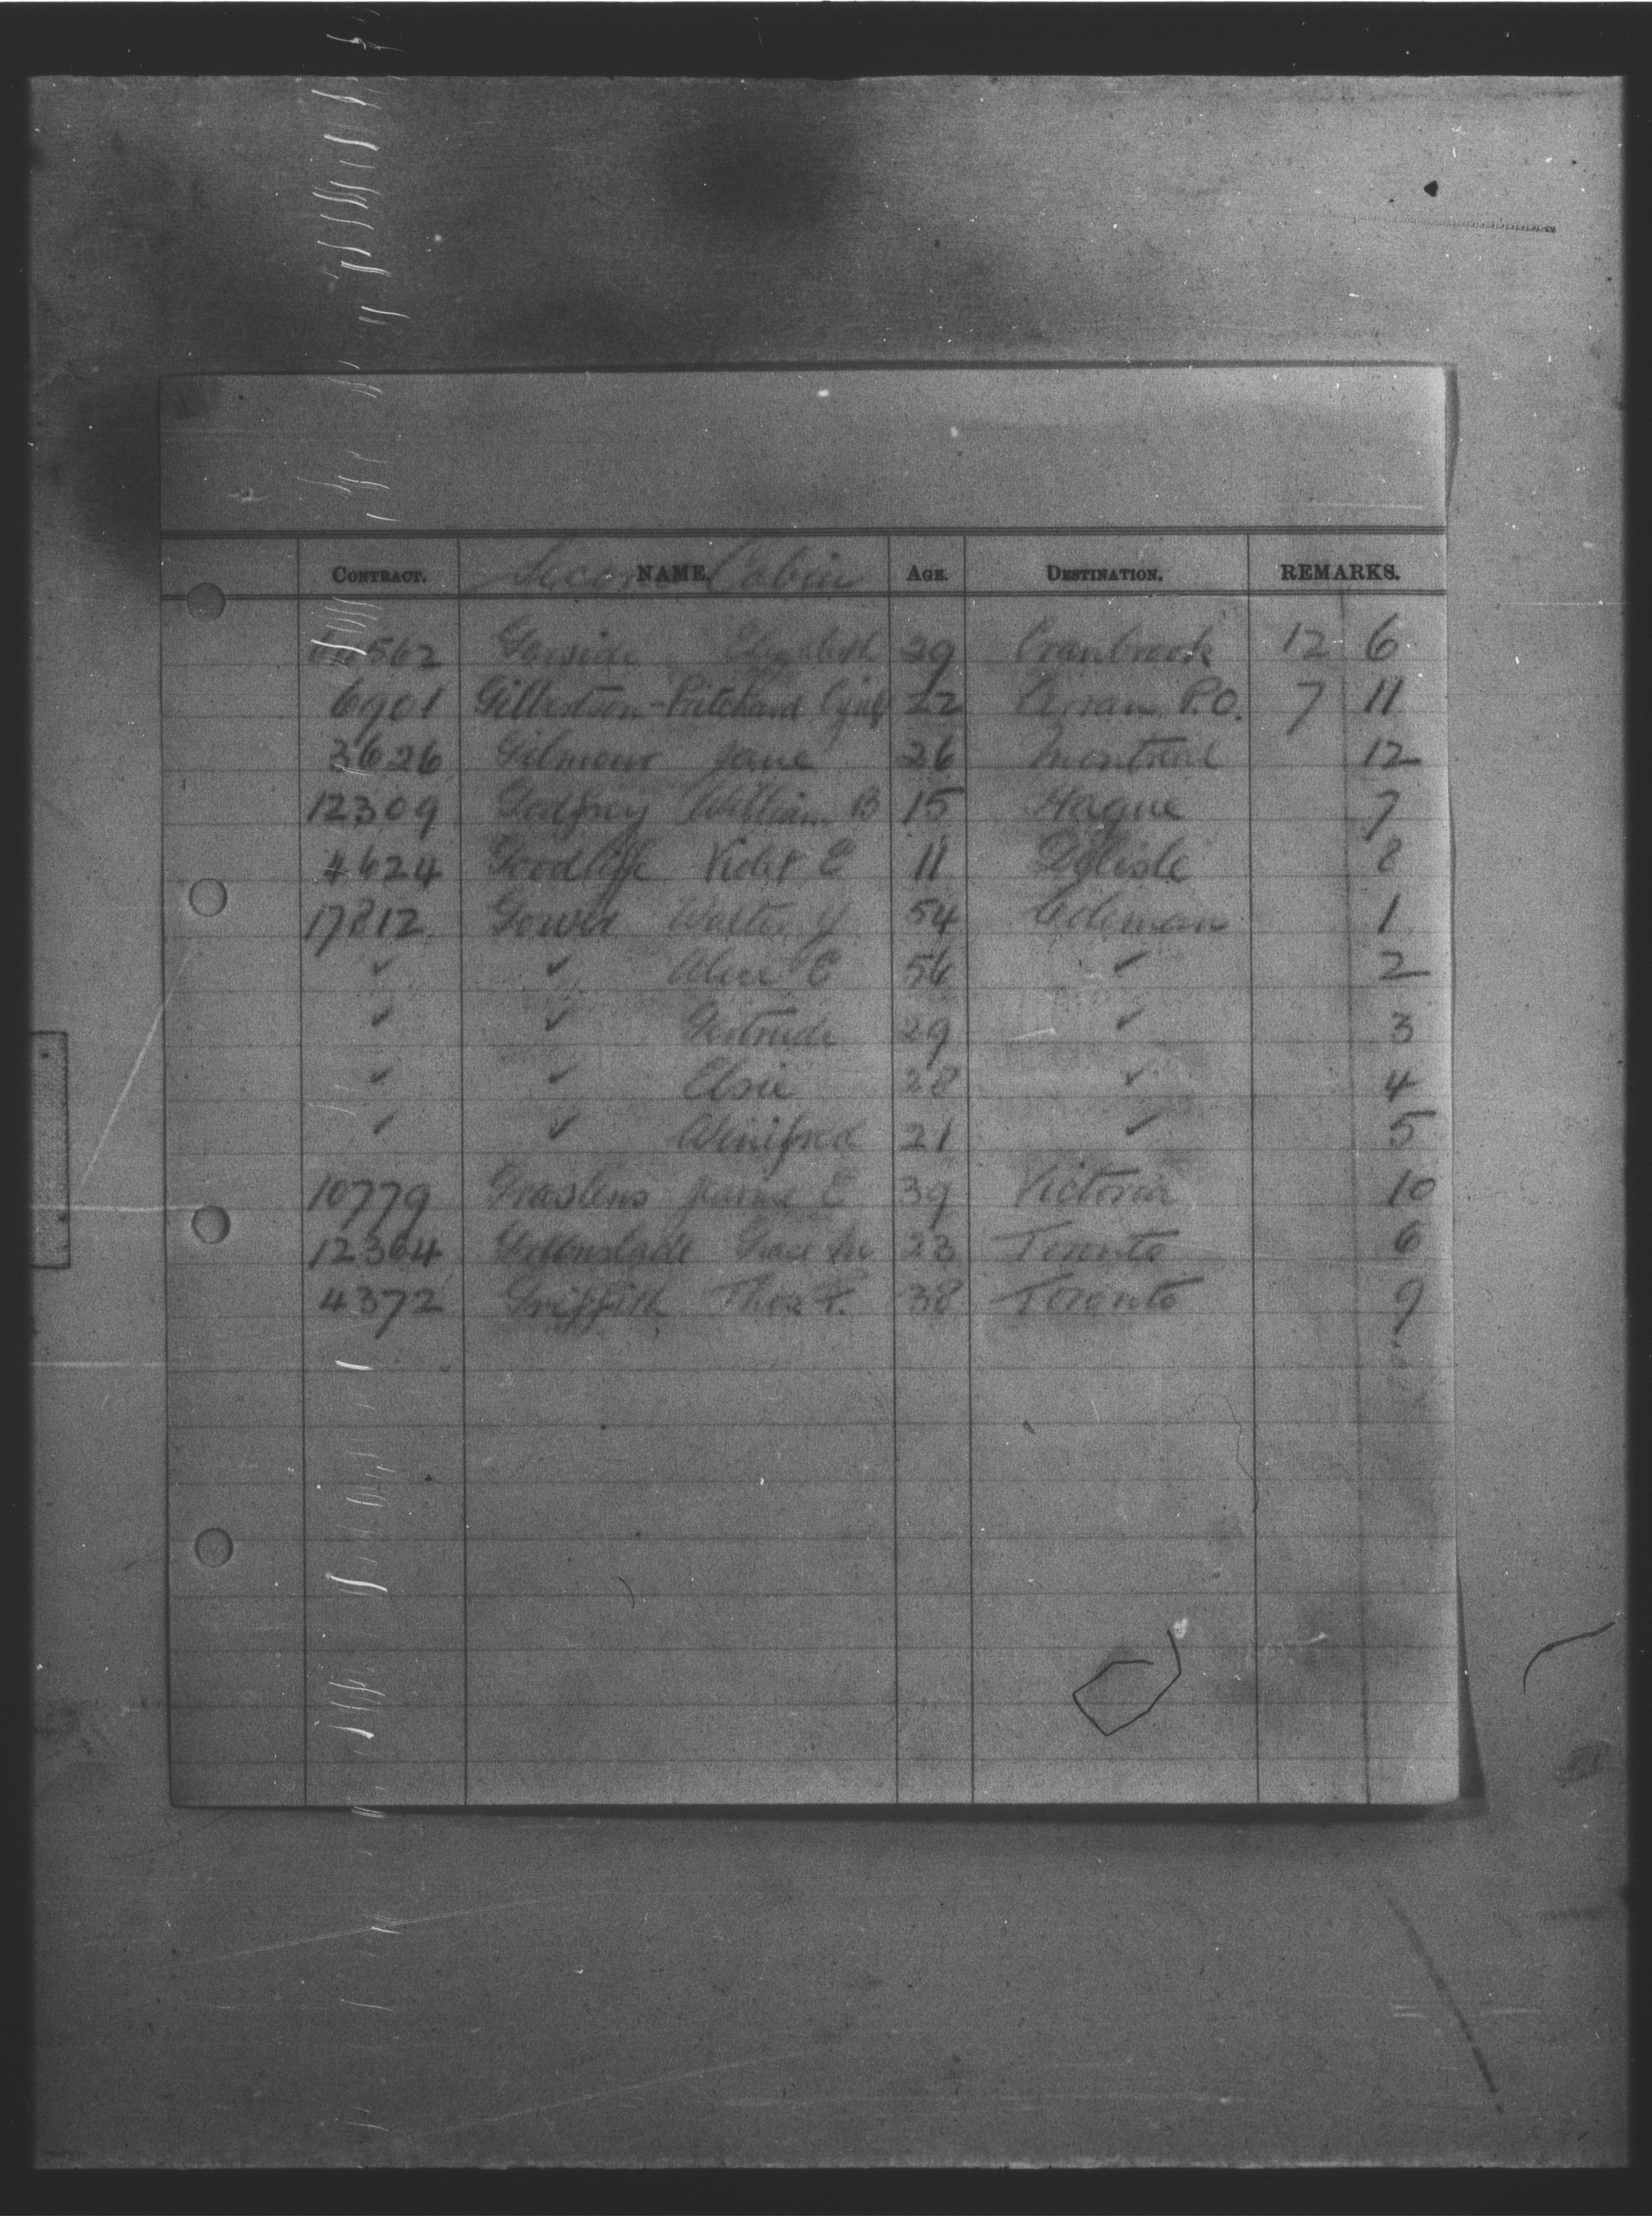 Second Cabin
CONTRACT. NAME. AGE. DESTINATION. REMARKS.
562 Garside Elizabeth 29 Cranbrook 12 6
6901 Gilbertson-Pritchard 22 P.O. 7 11
3626 Gilmour Jane 26 Montreal 12
12309 Godfrey William B 15 Hague 7
4624 Goodliffe Violet E 11 Delisle 8
17812 Gower Walter Y 54 Coleman 1
✓ ✓ Alice E 56 ✓ 2
✓ ✓ Gertrude 29 ✓ 3
✓ ✓ Elsie 28 ✓ 4
✓ ✓ Winifred 21 ✓ 5
10779 E 39 Victoria 10
12364 Greenslade Grace M 23 Toronto 6
4372 Griffith Thos F. 38 Toronto 9